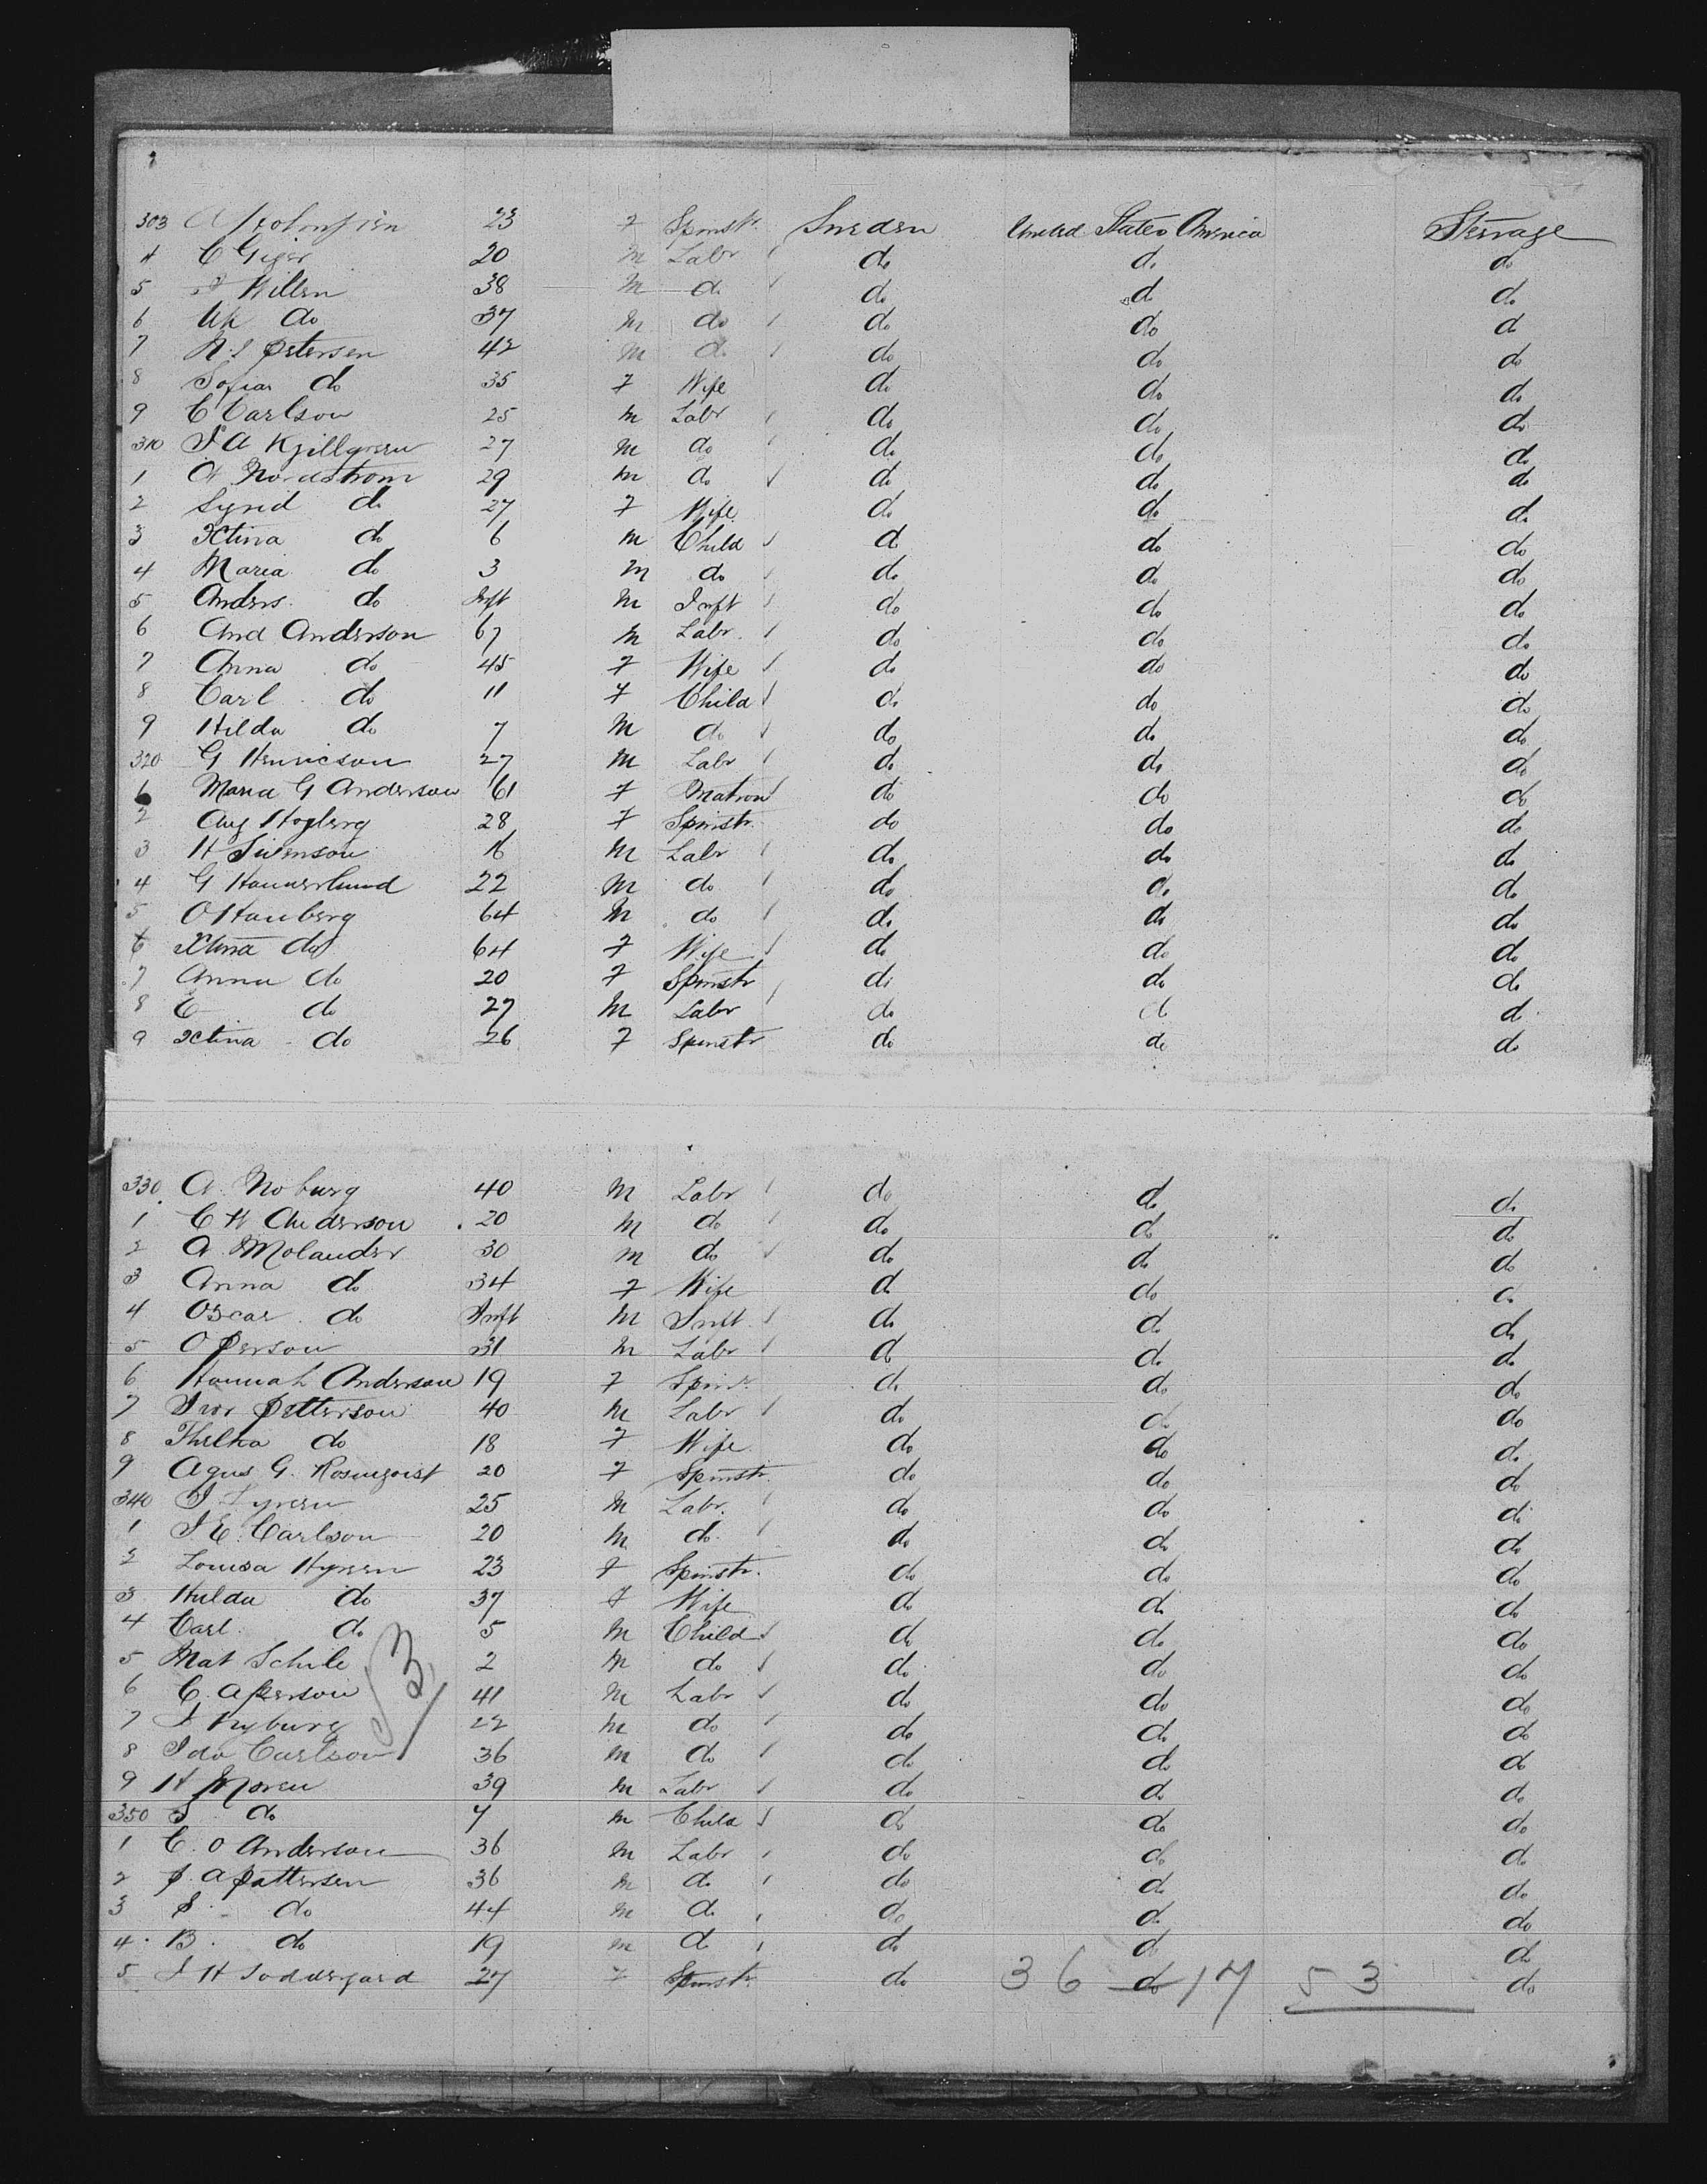 303 A Johnssen 23 F Spinstr. Sweden United States America Steerage
4 C Giger 20 M Labr do do do
5 Willen 38 M do do do do
6 Wh do 37 M do do do do
7 N. S Petersen 42 M do do do do
8 Sofia do 35 F Wife do do do
9 C Carlson 25 M Labr do do do
310 J A Kjillgren 27 M do do do do
1 A Nordstrom 29 M do do do do
2 Syrid do 27 F Wife do do do
3 Xtina do 6 M Child do do do
4 Maria do 3 M do do do do
5 Anders. do Inft M Inft do do do
6 And Anderson 67 M Labr. do do do
7 Anna do 45 F Wife do do do
8 Carl do 11 F Child do do do
9 Hilda do 7 M do do do do
320 G Henricson 27 M Labr do do do
1 Maria G Anderson 61 F Matron do do do
2 Aug Hogberg 28 F Spinstr. do do do
3 H Swenson 16 M Labr do do do
4 G Hammerlund 22 M do do do do
5 O Hanberg 64 M do do do do
6 Xtina do 64 F Wife do do do
7 Anna do 20 F Spinstr do do do
8 E do 27 M Labr do do do
9 Xtina do 26 F Spinstr do do do
330 A. Noburg 40 M Labr do do do
1 C H Anderson 20 M do do do do
2 A. Molander 30 M do do do do
3 Anna do 34 F Wife do do do
4 Oscar do Inft M Inft. do do do
5 O Person 31 M Labr do do do
6 Hannah Anderson 19 F Spinr. do do do
7 Iwr Petterson 40 M Labr do do do
8 Thelka do 18 F Wife do do do
9 Agnes G. Rosenqvist 20 F Spinstr. do do do
340 J Lyreen 25 M Labr. do do do
1 J E. Carlson 20 M do do do do
2 Louisa Hyreen 23 F Spinstr. do do do
3 Hulda do 37 F Wife do do do
4 Carl. do 5 M Child do do do
5 Mat Schile 2 M do do do do
6 C. A Person 41 M Labr do do do
7 J Nyburg 22 M do do do do
8 Ida Carlson 36 M do do do do
53
9 H Moren 39 M Labr do do do
350 S do 7 M Child do do do
1 C. O Anderson 36 M Labr do do do
2 J. A Pattersen 36 M do do do do
3 S. do 44 M do do do do
4 B. do 19 M do do do do
5 J H Soddergard 27 F Spinstr. do do do
36 17 53